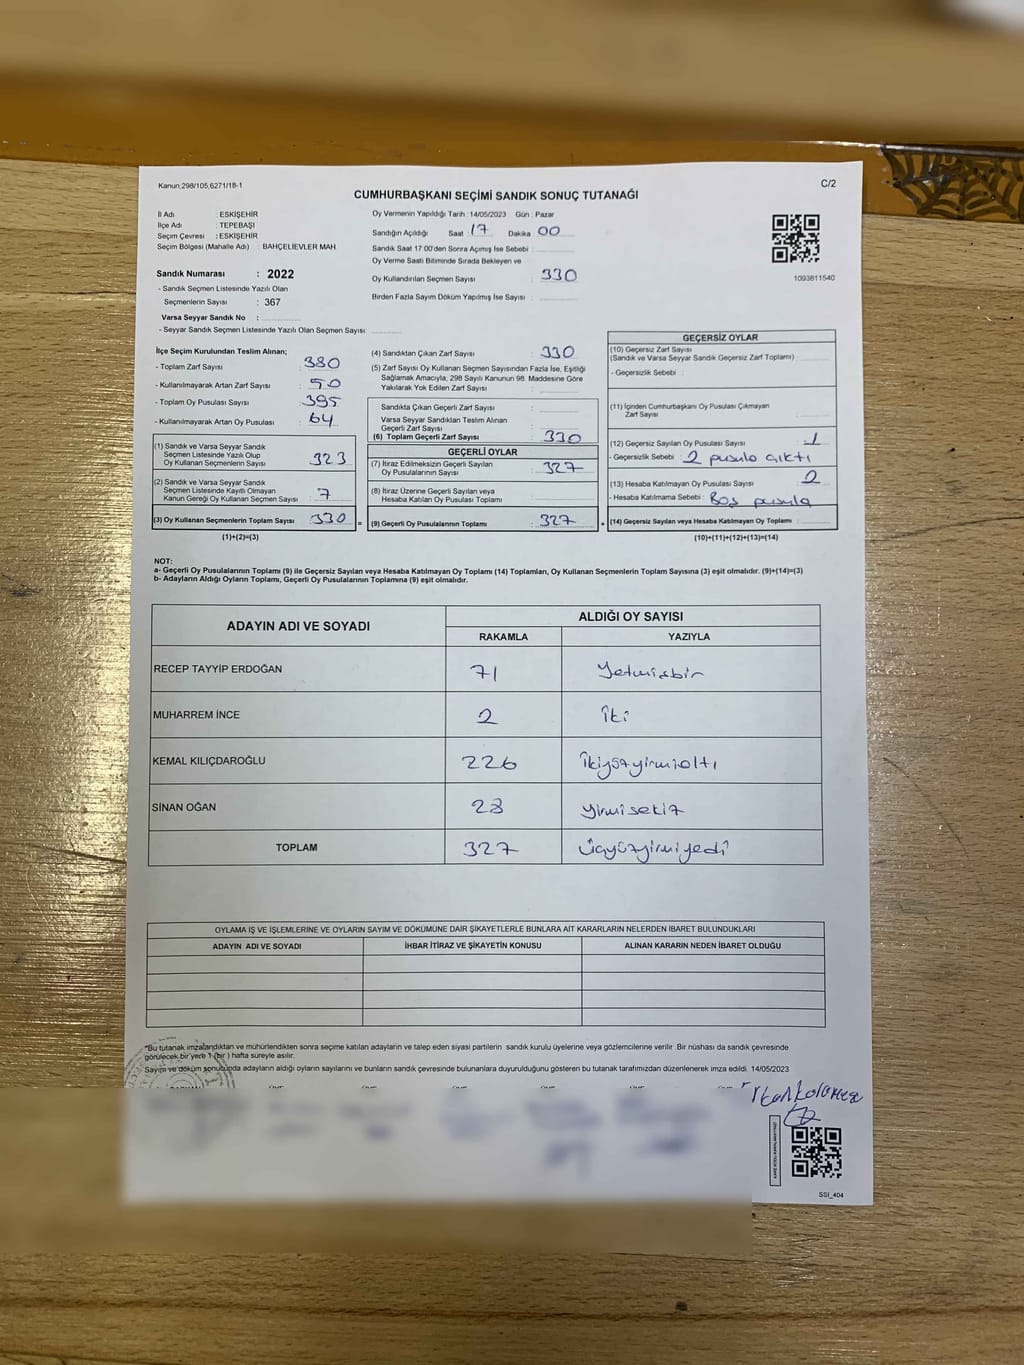 Kanun:298/105;6271/18-1
C/2
CUMHURBAŞKANI SEÇİMİ SANDIK SONUÇ TUTANAĞI
İl Adı : ESKİŞEHİR
İlçe Adı : TEPEBAŞI
Seçim Çevresi : ESKİŞEHİR
Seçim Bölgesi (Mahalle Adı) : BAHÇELİEVLER MAH
Sandık Numarası : 2022
- Sandık Seçmen Listesinde Yazılı Olan
Seçmenlerin Sayısı : 367
Varsa Seyyar Sandık No :
- Seyyar Sandık Seçmen Listesinde Yazılı Olan Seçmen Sayısı :
Oy Vermenin Yapıldığı Tarih : 14/05/2023 Gün : Pazar
Sandığın Açıldığı Saat : 17 Dakika 00
Sandık Saat 17:00'den Sonra Açımış İse Sebebi :
Oy Verme Saati Bitiminde Sırada Bekleyen ve
Oy Kullandırılan Seçmen Sayısı : 330
Birden Fazla Sayım Döküm Yapılmış İse Sayısı :
1093811540
İlçe Seçim Kurulundan Teslim Alınan;
- Toplam Zarf Sayısı : 380
- Kullanılmayarak Artan Zarf Sayısı : 50
- Toplam Oy Pusulası Sayısı : 395
- Kullanılmayarak Artan Oy Pusulası : 64
(1) Sandık ve Varsa Seyyar Sandık
Seçmen Listesinde Yazılı Olup
Oy Kullanan Seçmenlerin Sayısı : 323
(2) Sandık ve Varsa Seyyar Sandık
Seçmen Listesinde Kayıtlı Olmayan
Kanun Gereği Oy Kullanan Seçmen Sayısı : 7
(3) Oy Kullanan Seçmenlerin Toplam Sayısı : 330
(1)+(2)=(3)
(4) Sandıktan Çıkan Zarf Sayısı : 330
(5) Zarf Sayısı Oy Kullanan Seçmen Sayısından Fazla İse, Eşitliği
Sağlamak Amacıyla, 298 Sayılı Kanunun 98. Maddesine Göre
Yakılarak Yok Edilen Zarf Sayısı :
Sandıkta Çıkan Geçerli Zarf Sayısı :
Varsa Seyyar Sandıktan Teslim Alınan
Geçerli Zarf Sayısı :
(6) Toplam Geçerli Zarf Sayısı : 330
GEÇERLİ OYLAR
(7) İtiraz Edilmeksizin Geçerli Sayılan
Oy Pusulalarının Sayısı : 327
(8) İtiraz Üzerine Geçerli Sayılan veya
Hesaba Katılan Oy Pusulası Toplamı :
(9) Geçerli Oy Pusulalarının Toplamı : 327
GEÇERSİZ OYLAR
(10) Geçersiz Zarf Sayısı
(Sandık ve Varsa Seyyar Sandık Geçersiz Zarf Toplamı) :
- Geçersizlik Sebebi :
(11) İçinden Cumhurbaşkanı Oy Pusulası Çıkmayan
Zarf Sayısı :
(12) Geçersiz Sayılan Oy Pusulası Sayısı : 1
- Geçersizlik Sebebi : 2 pusula çıktı
(13) Hesaba Katılmayan Oy Pusulası Sayısı : 2
- Hesaba Katılmama Sebebi : Boş pusula
(14) Geçersiz Sayılan veya Hesaba Katılmayan Oy Toplamı :
(10)+(11)+(12)+(13)=(14)
NOT:
a- Geçerli Oy Pusulalarının Toplamı (9) ile Geçersiz Sayılan veya Hesaba Katılmayan Oy Toplamı (14) Toplamları, Oy Kullanan Seçmenlerin Toplam Sayısına (3) eşit olmalıdır. (9)+(14)=(3)
b- Adayların Aldığı Oyların Toplamı, Geçerli Oy Pusulalarının Toplamına (9) eşit olmalıdır.
ADAYIN ADI VE SOYADI
ALDIĞI OY SAYISI
RAKAMLA YAZIYLA
RECEP TAYYİP ERDOĞAN 71 Yetmişbir
MUHARREM İNCE 2 İki
KEMAL KILIÇDAROĞLU 226 İkiyüzyirmialtı
SİNAN OĞAN 28 yirmisekiz
TOPLAM 327 Üçyüzyirmiyedi
OYLAMA İŞ VE İŞLEMLERİNE VE OYLARIN SAYIM VE DÖKÜMÜNE DAİR ŞİKAYETLERLE BUNLARA AİT KARARLARIN NELERDEN İBARET BULUNDUKLARI
ADAYIN ADI VE SOYADI İHBAR İTİRAZ VE ŞİKAYETİN KONUSU ALINAN KARARIN NEDEN İBARET OLDUĞU
*Bu tutanak imzalandıktan ve mühürlendikten sonra seçime katılan adayların ve talep eden siyasi partilerin sandık kurulu üyelerine veya gözlemcilerine verilir. Bir nüshası da sandık çevresinde
görülecek bir yere 1 (bir ) hafta süreyle asılır.
Sayım ve döküm sonucunda adayların aldığı oyların sayılarını ve bunların sandık çevresinde bulunanlara duyurulduğunu gösteren bu tutanak tarafımızdan düzenlenerek imza edildi. 14/05/2023
SSI_404